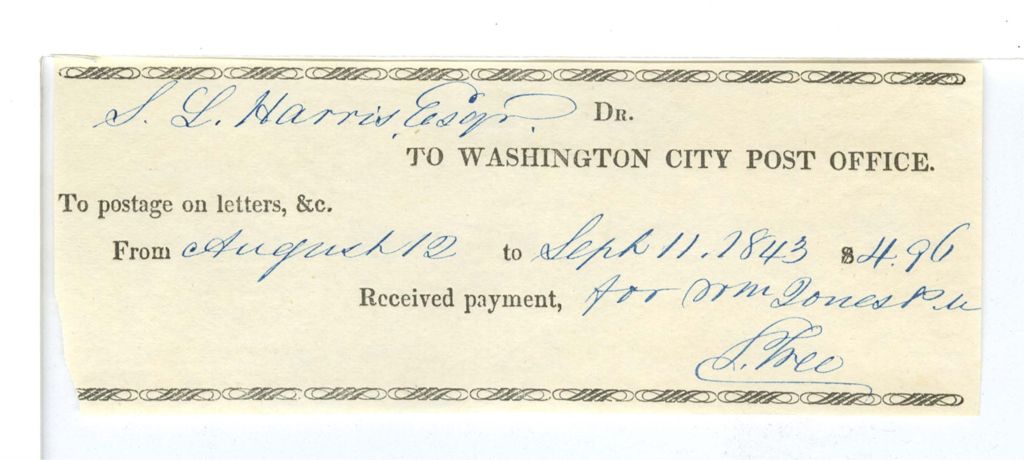 S. L. Harris, Esqr. DR.
TO WASHINGTON CITY POST OFFICE.
To postage on letters, &c.
From August 12 to Sept 11. 1843 $4.96
Received payment, for Wm Jones P M
S. Tree